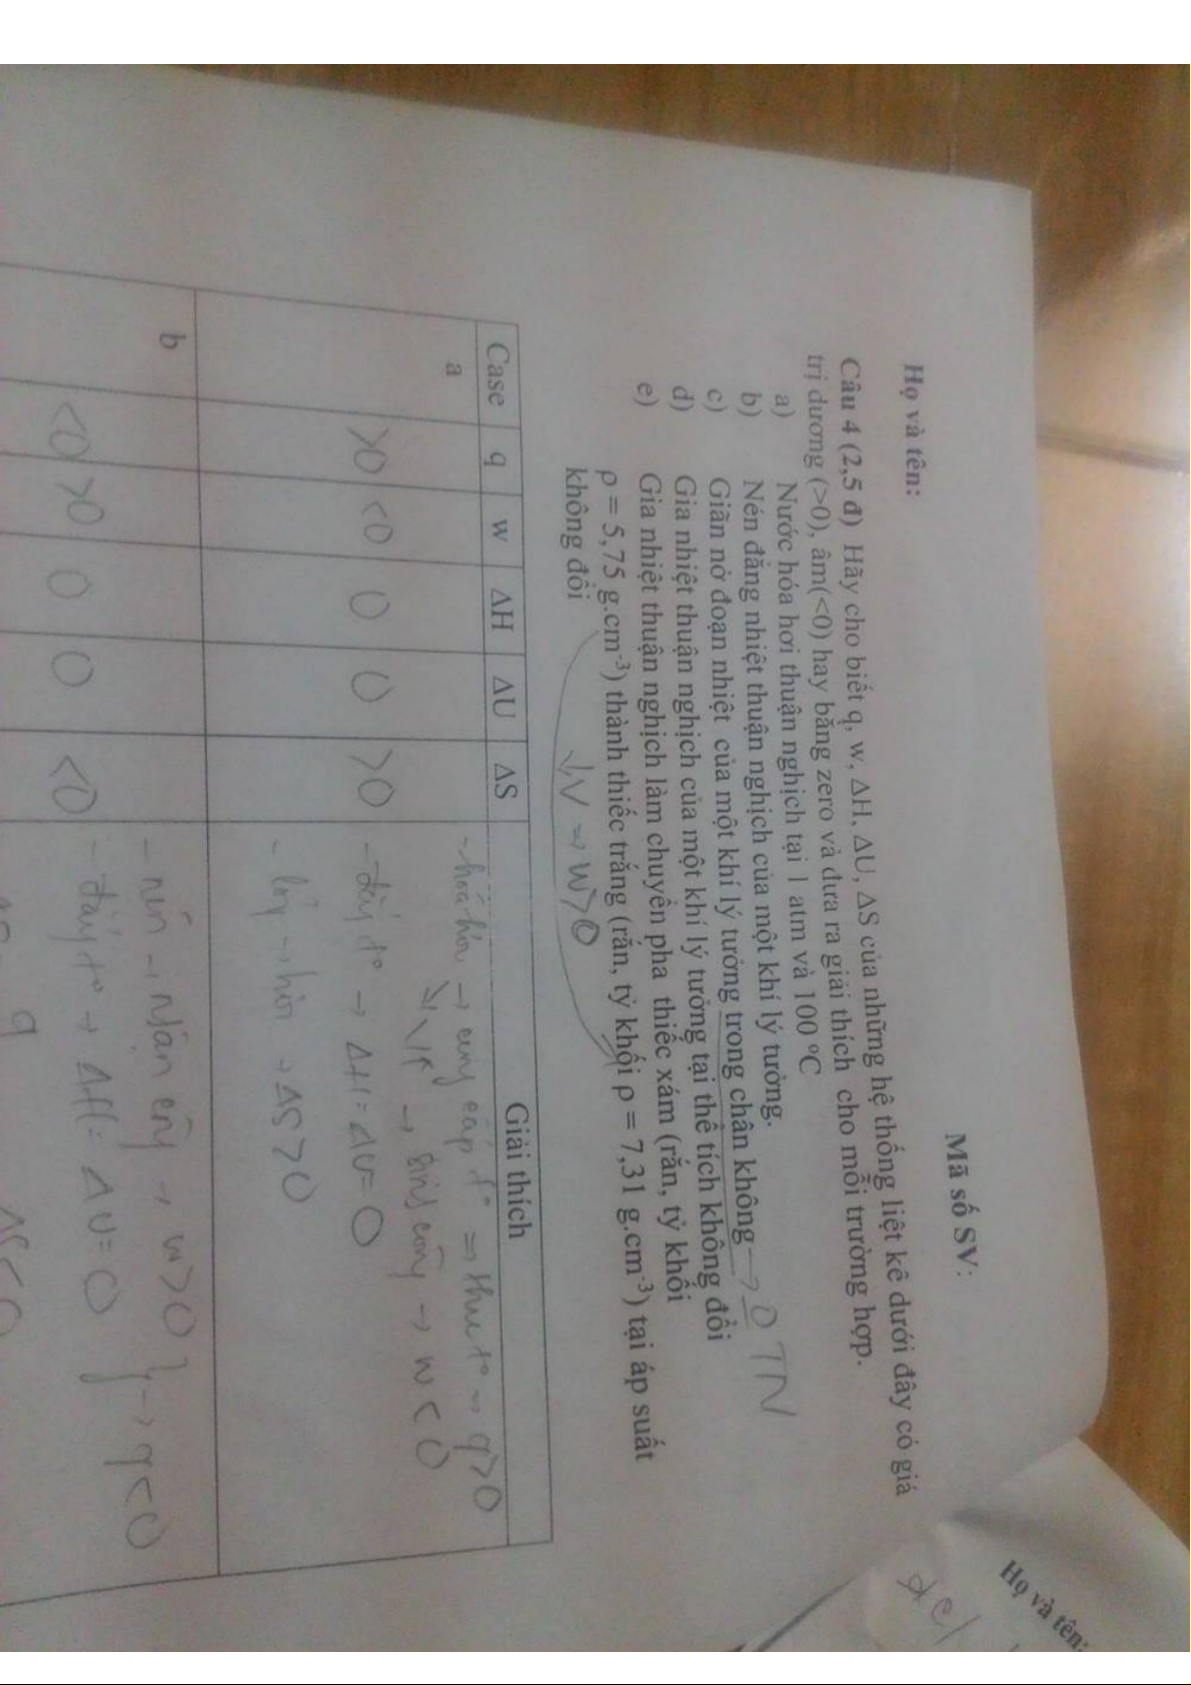 Mã số SV:
Họ và tên:
Câu 4 (2,5 đ) Hãy cho biết q, w, ΔH, ΔU, ΔS của những hệ thống liệt kê dưới đây có giá
trị dương (>0), âm(<0) hay bằng zero và đưa ra giải thích cho mỗi trường hợp.
a) Nước hóa hơi thuận nghịch tại 1 atm và 100 °C
b) Nén đẳng nhiệt thuận nghịch của một khí lý tưởng.
c) Giãn nở đoạn nhiệt của một khí lý tưởng trong chân không → 0 TN
d) Gia nhiệt thuận nghịch của một khí lý tưởng tại thể tích không đổi
e) Gia nhiệt thuận nghịch làm chuyển pha thiếc xám (rắn, tỷ khối
ρ = 5,75 g.cm⁻³) thành thiếc trắng (rắn, tỷ khối ρ = 7,31 g.cm⁻³) tại áp suất
không đổi
↓V → w>0
Case q w ΔH ΔU ΔS Giải thích
a >0 <0 0 0 >0
- hóa hơi → cung cấp t° → thu t° → q>0
→ sinh công → w<0
- đẳng t° → ΔH = ΔU = 0
- lỏng → hơi → ΔS>0
b <0 >0 0 0 <0
- nén → nhận công → w>0 } → q<0
- đẳng t° → ΔH = ΔU = 0
q ΔS<0
Họ và tên: